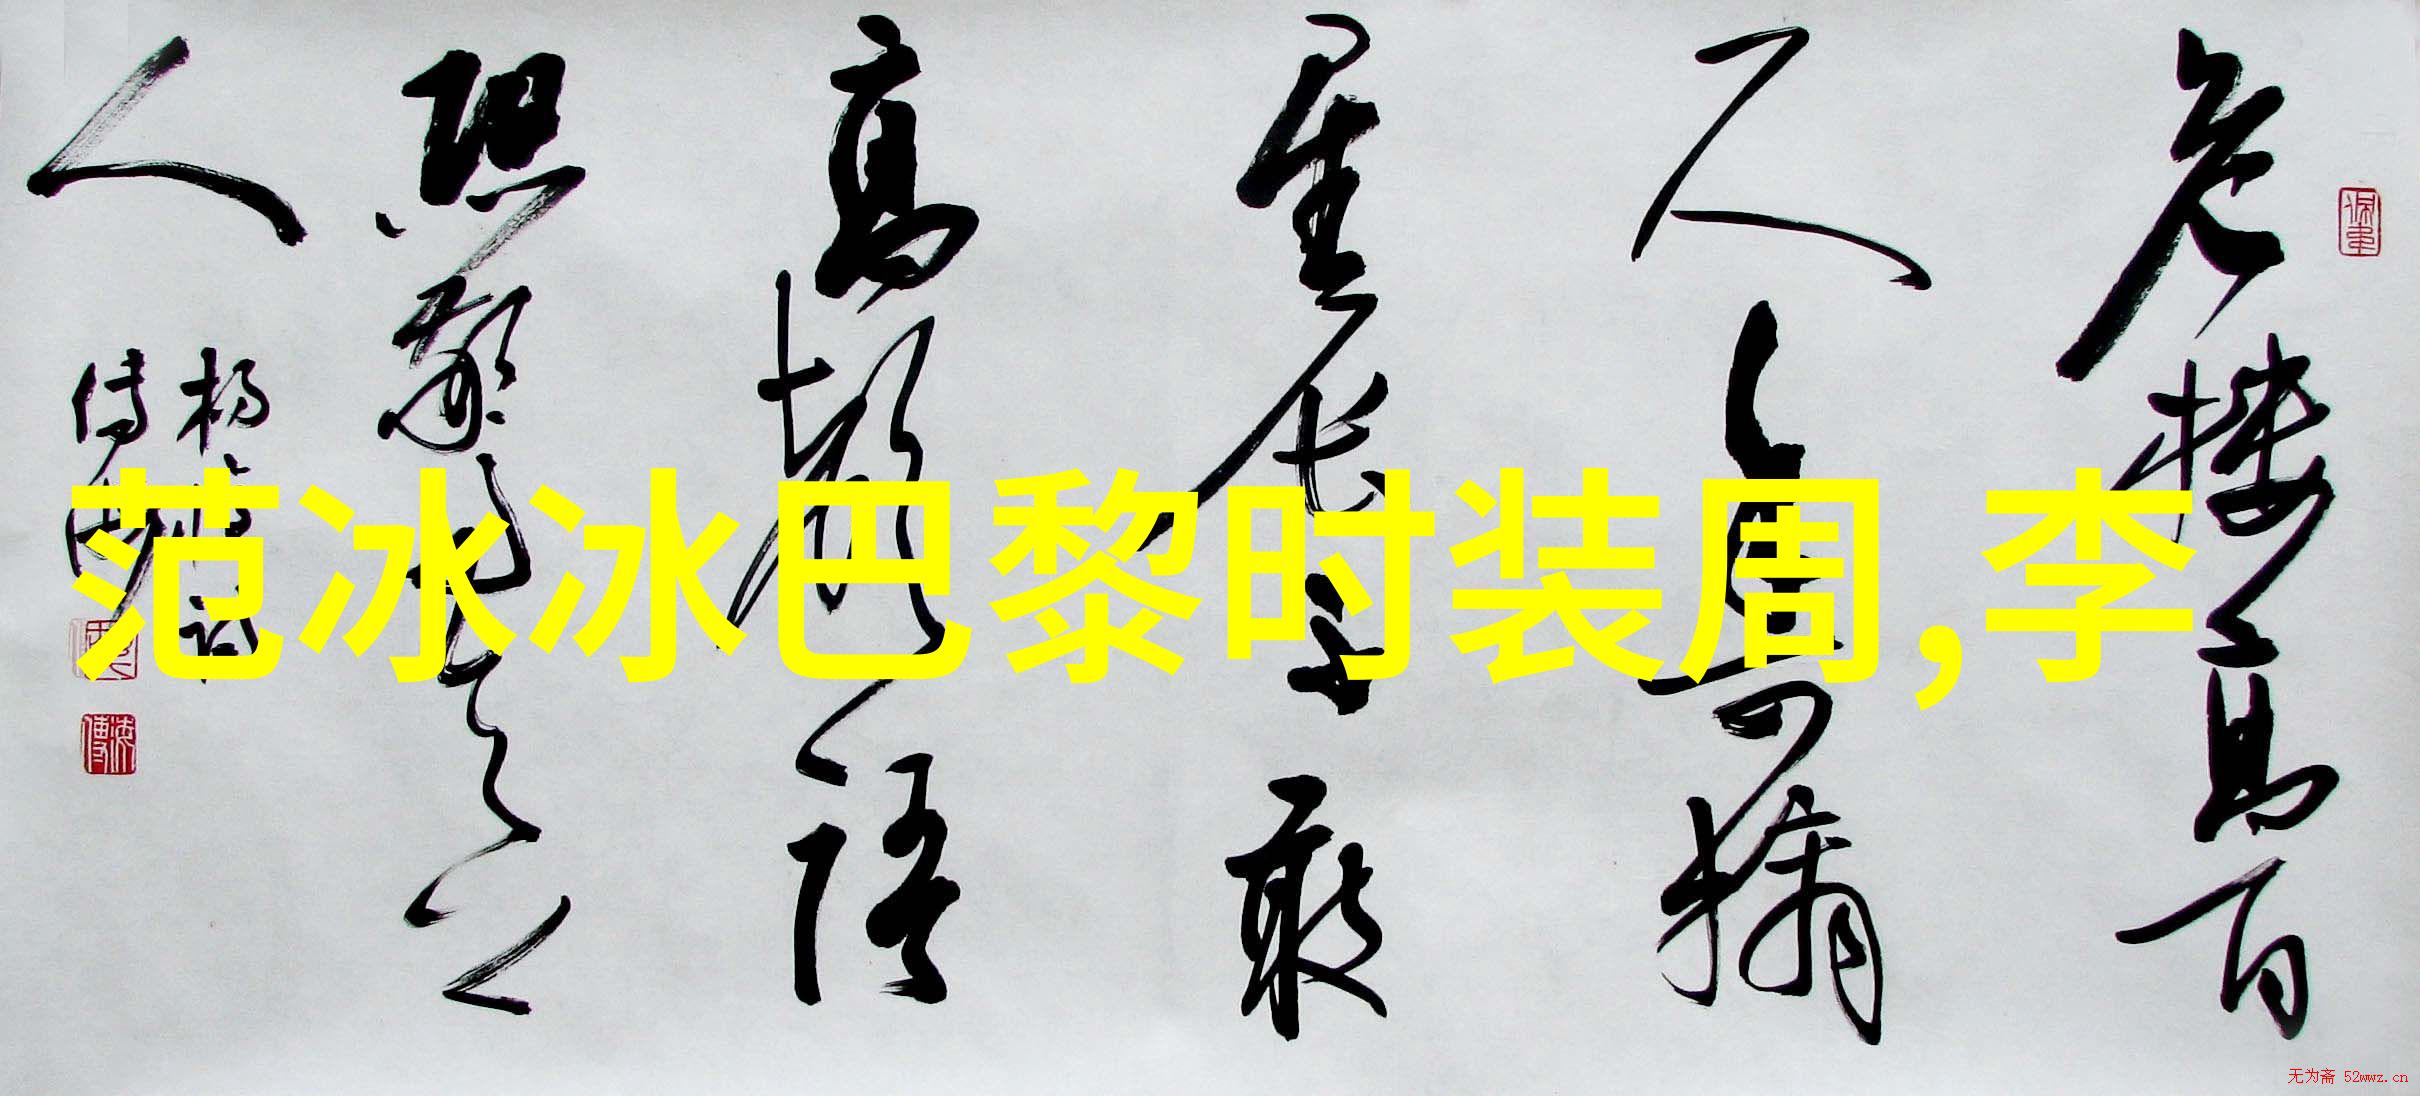 危楼高百
尺手可摘
星辰不敢
高聲語
恐驚天上
人
范冰冰巴黎时装周,李
无为斋 52wwz.cn